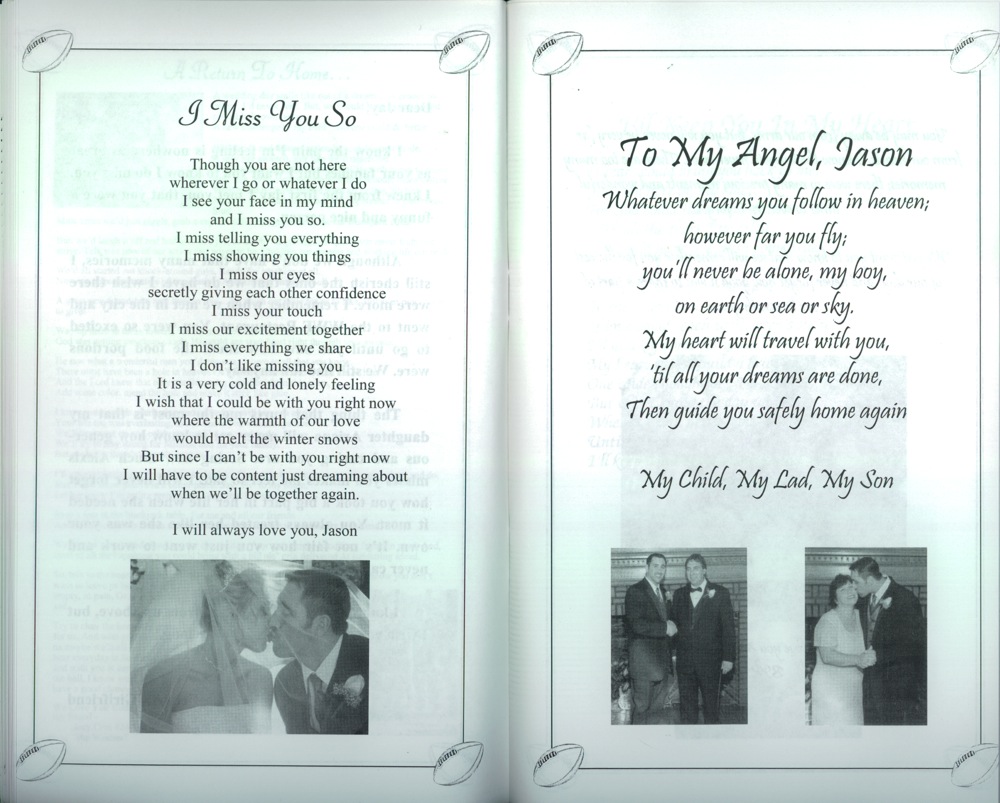 I Miss You So
Though you are not here
wherever I go or whatever I do
I see your face in my mind
and I miss you so.
I miss telling you everything
I miss showing you things
I miss our eyes
secretly giving each other confidence
I miss your touch
I miss our excitement together
I miss everything we share
I don't like missing you
It is a very cold and lonely feeling
I wish that I could be with you right now
where the warmth of our love
would melt the winter snows
But since I can't be with you right now
I will have to be content just dreaming about
when we'll be together again.
I will always love you, Jason
To My Angel, Jason
Whatever dreams you follow in heaven;
however far you fly;
you'll never be alone, my boy,
on earth or sea or sky.
My heart will travel with you,
'til all your dreams are done,
Then guide you safely home again
My Child, My Lad, My Son